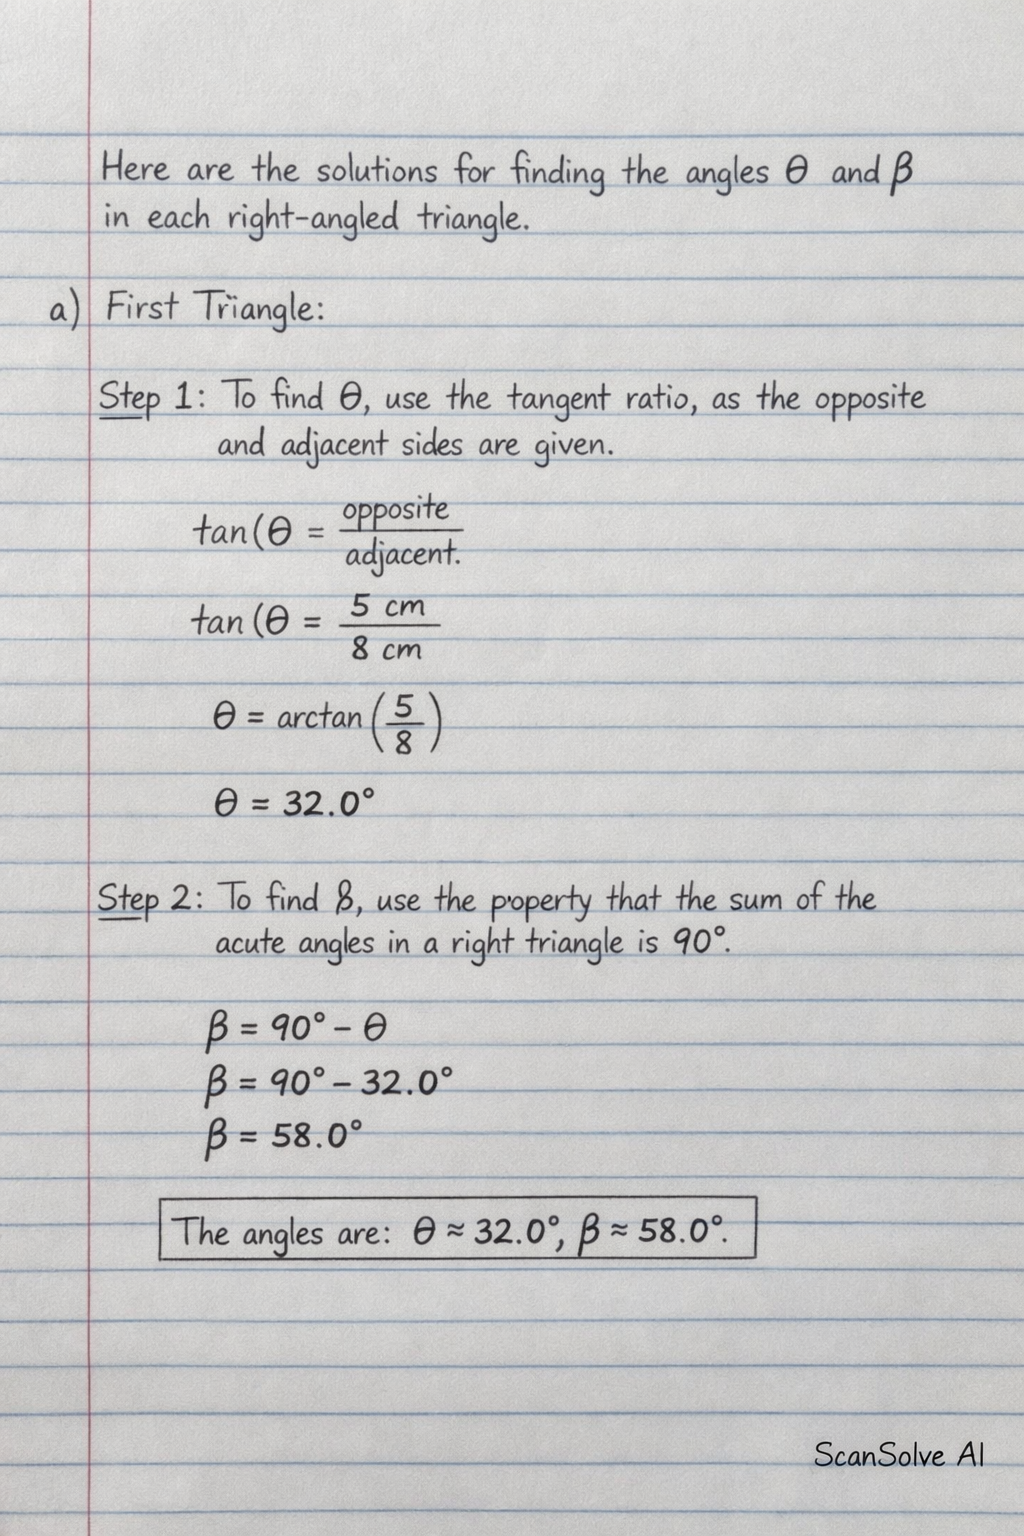 Here are the solutions for finding the angles θ and β
in each right-angled triangle.
a) First Triangle:
Step 1: To find θ, use the tangent ratio, as the opposite
and adjacent sides are given.
tan(θ = opposite / adjacent.
tan(θ = 5 cm / 8 cm
θ = arctan(5/8)
θ = 32.0°
Step 2: To find β, use the poperty that the sum of the
acute angles in a right triangle is 90°.
β = 90° – θ
β = 90° – 32.0°
β = 58.0°
The angles are: θ ≈ 32.0°, β ≈ 58.0°.
ScanSolve AI